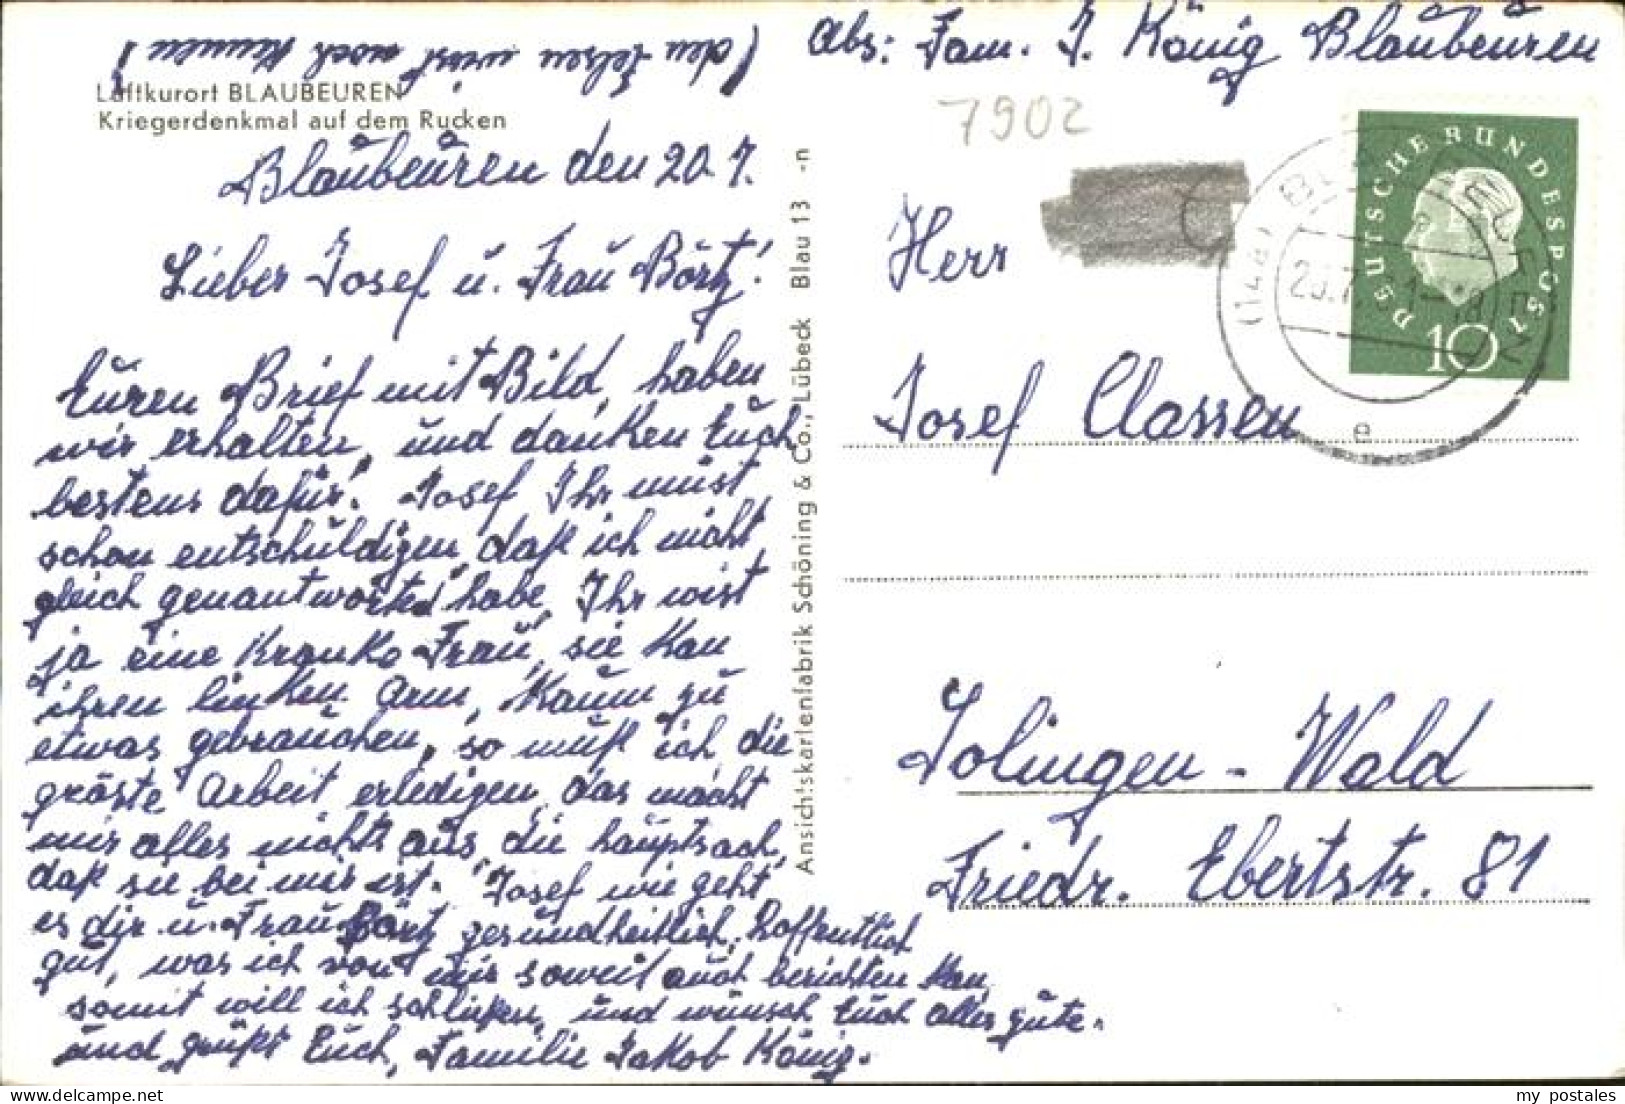 (den Felsen wirst noch kennen!
Luftkurort BLAUBEUREN
Kriegerdenkmal auf dem Rucken
Blaubeuren den 20.7.
Lieber Josef u. Frau Börtz!
Euren Brief mit Bild, haben
wir erhalten, und danken Euch
bestens dafür. Josef Ihr müst
schon entschuldigen, daß ich nicht
gleich genantwortet habe, Ihr wist
ja eine Kranke Frau, sie Kan
ihren linken Arm, Kaum zu
etwas gebrauchen, so muß ich die
gröste Arbeit erledigen, das macht
mir alles nichts aus, die hauptsach,
daß sie bei mir ist. Josef wie geht
es dir u. Frau Börtz gesundheitlich, hoffentlich
gut, was ich von mir soweit auch berichten Kan,
somit will ich schließen, und wünsch Euch alles gute.
und grüßt Euch, Familie Jakob König.
Ansichtskartenfabrik Schöning & Co., Lübeck Blau 13 -n
Abs: Fam. J. König Blaubeuren
7902
DEUTSCHE BUNDESPOST
10
(14b) BLAUBEUREN
20.7.
e
Herr
Josef Classen
Solingen - Wald
Friedr. Ebertstr. 81
my postales